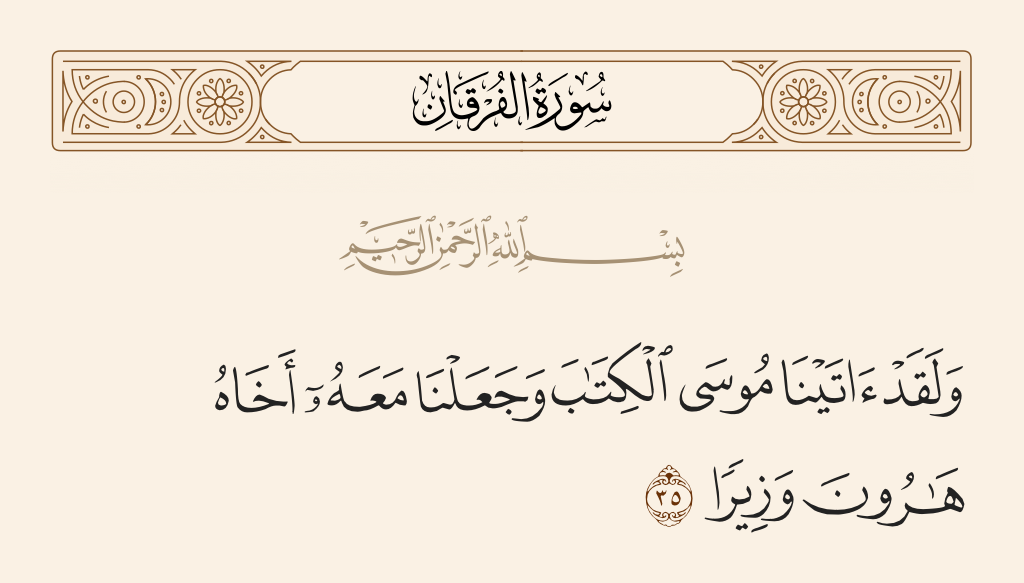 سُورَةُ الفُرْقَانِ
بِسْمِ ٱللَّهِ ٱلرَّحْمَٰنِ ٱلرَّحِيمِ
وَلَقَدْ ءَاتَيْنَا مُوسَى ٱلْكِتَٰبَ وَجَعَلْنَا مَعَهُۥٓ أَخَاهُ
هَٰرُونَ وَزِيرًا ٣٥